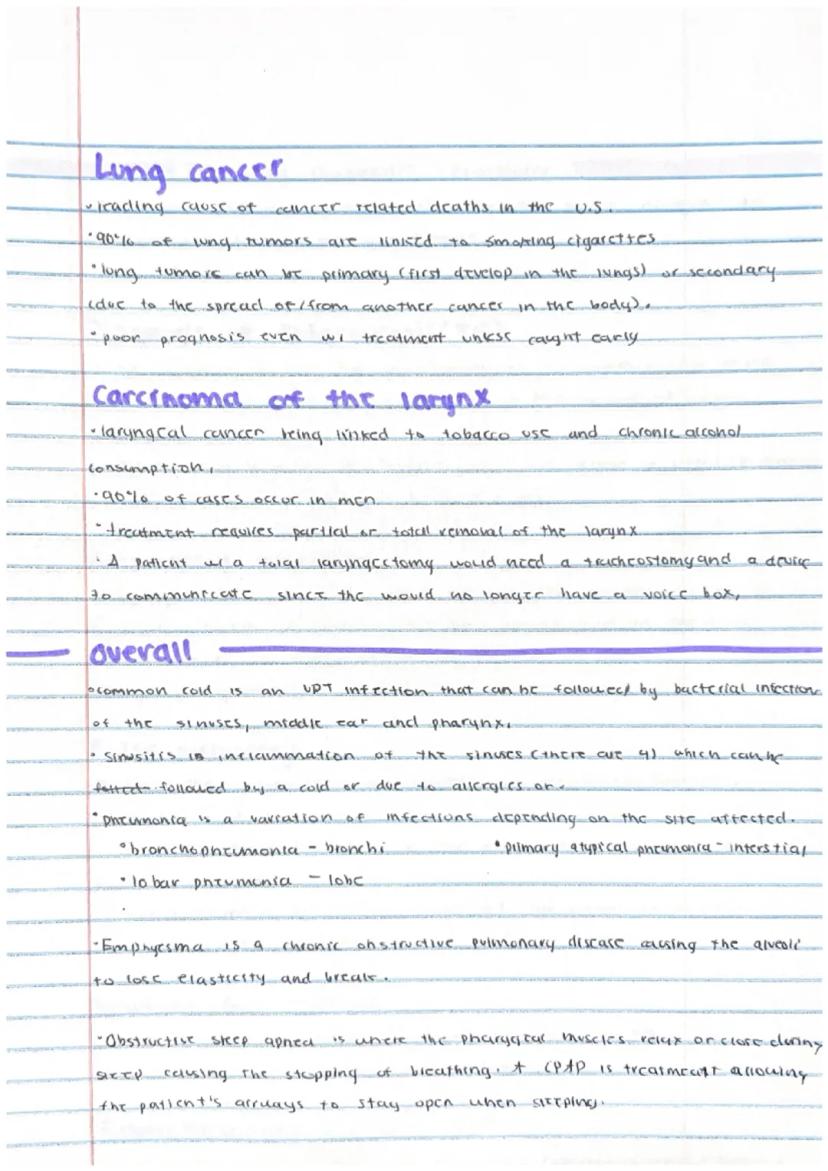 Lung cancer
• leading cause of cancer related deaths in the U.S.
• 90% of lung tumors are linked to smoking cigarettes
• lung tumors can be primary (first develop in the lungs) or secondary
(due to the spread of/from another cancer in the body).
• poor prognosis even w/ treatment unless caught early
Carcinoma of the larynx
• laryngeal cancer being linked to tobacco use and chronic alcohol
consumption,
• 90% of cases occur in men
• treatment requires partial or total removal of the larynx
• A patient w/ a total laryngectomy would need a tracheostomy and a device
to communicate since the would no longer have a voice box,
overall
• common cold is an UPT infection that can be followed by bacterial infection
of the sinuses, middle ear and pharynx,
• Sinusitis is inflammation of the sinuses (there are 4) which can be
followed by a cold or due to allergies or.
• pneumonia is a variation of infections depending on the site affected.
• bronchopneumonia - bronchi • primary atypical pneumonia - interstial
• lobar pneumonia - lobe
• Emphyesma is a chronic obstructive pulmonary disease causing the alveoli
to lose elasticity and break.
• Obstructive sleep apnea is where the pharygeal muscles relax or close during
sleep causing the stopping of breathing. A CPAP is treatment allowing
the patient's airways to stay open when sleeping.